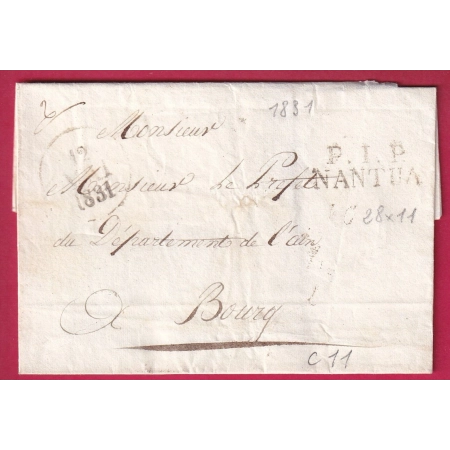 1831
Monsieur
P. I. P.
NANTUA
12
1831
Monsieur Le Préfet
du Département de l'ain
28x11
A Bourg
C 11